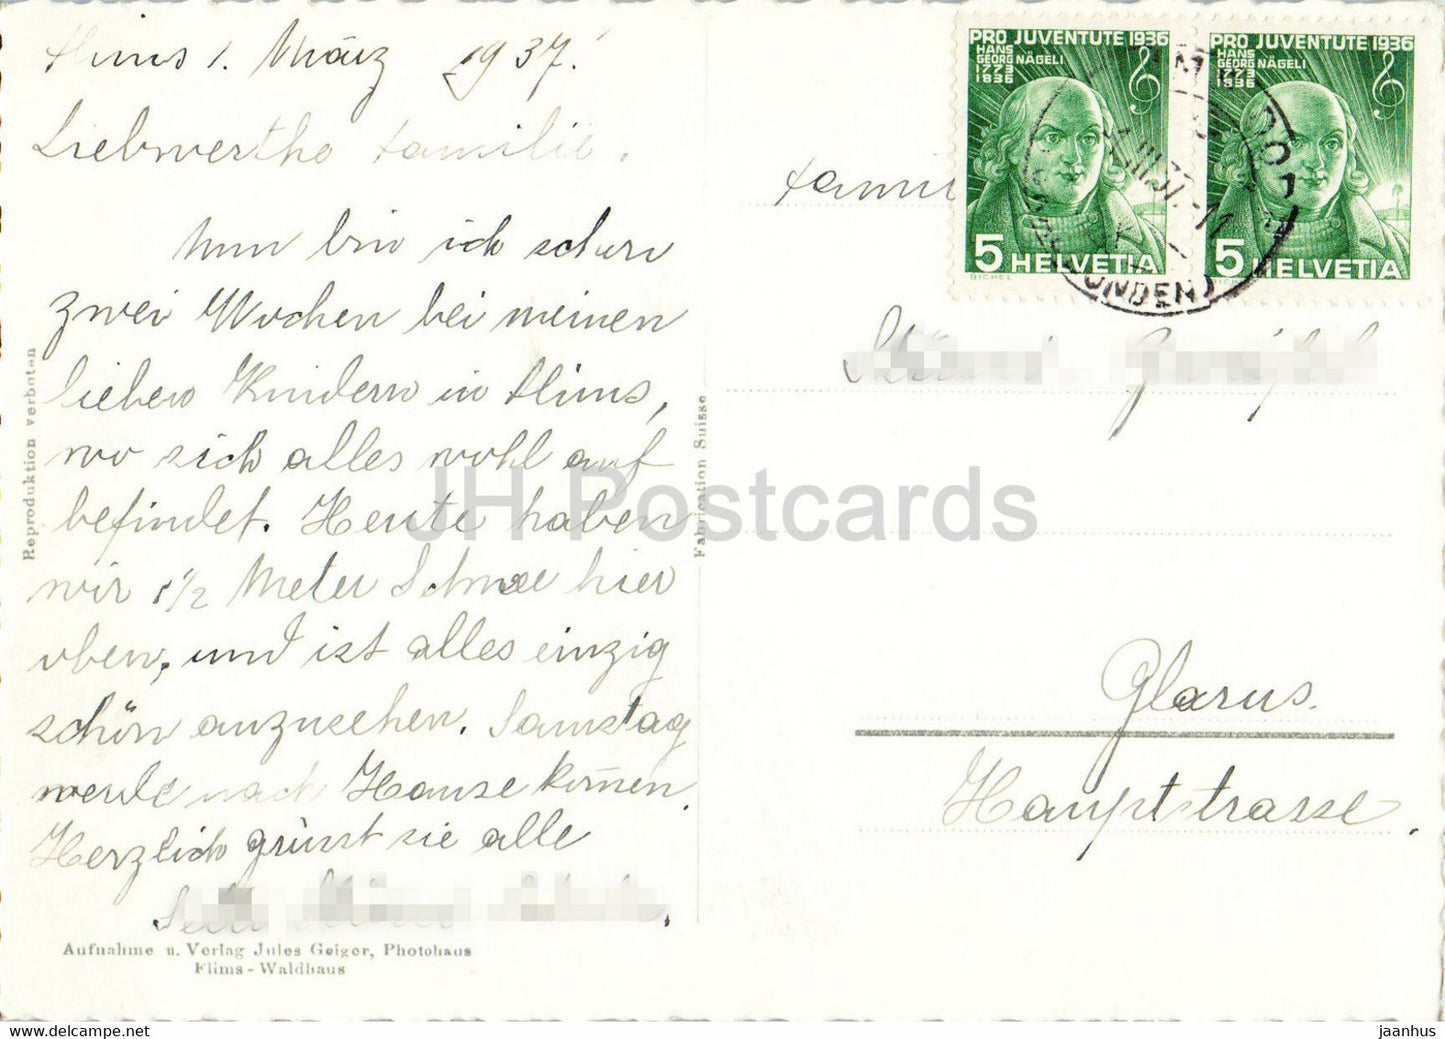 Flims 1. März 1937.
Liebwerthe Familie.
Nun bin ich schon
zwei Wochen bei meinen
lieben Kindern in Flims,
wo sich alles wohl auf
befindet. Heute haben
wir 1½ Meter Schnee hier
oben, und ist alles einzig
schön anzusehen. Samstag
werde nach Hause kom̅en.
Herzlich grüsst sie alle
Aufnahme u. Verlag Jules Geiger, Photohaus
Flims - Waldhaus
Reproduktion verboten
Fabrication Suisse
PRO JUVENTUTE 1936
HANS
GEORG NÄGELI
1773
1836
5 HELVETIA
BICKEL
PRO JUVENTUTE 1936
HANS
GEORG NÄGELI
1773
1836
5 HELVETIA
BICKEL
Glarus.
Hauptstrasse.
JH Postcards
hip.com - Make your own store
jaanhus